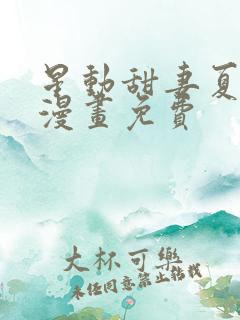 星動甜妻夏
漫畫免費
大杯可樂
未經同意禁止轉載